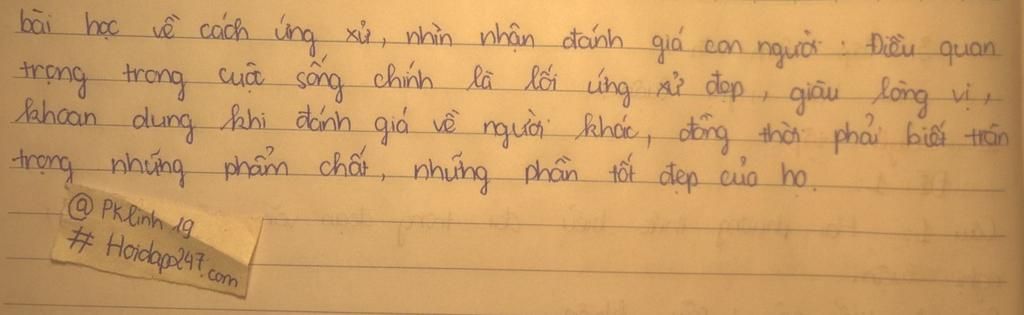 bài học về cách ứng xử, nhìn nhận đánh giá con người: Điều quan
trọng trong cuộc sống chính là lối ứng xử đẹp, giàu lòng vị,
khoan dung khi đánh giá về người khác, đồng thời phải biết trân
trọng những phẩm chất, những phần tốt đẹp của họ.
@ PKlinh 19
# Hoidap247.com